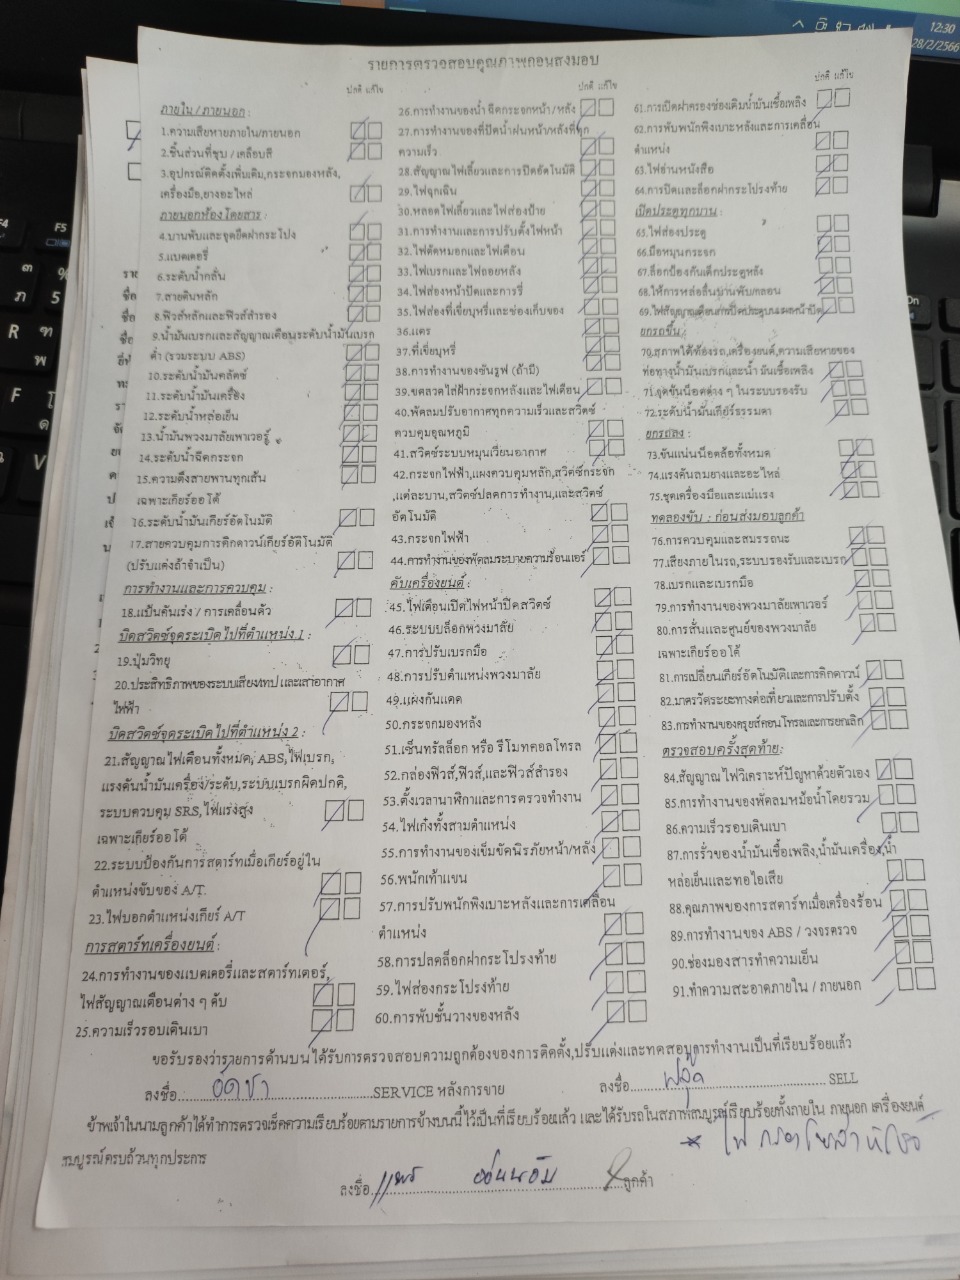 12:30
28/2/2566
รายการตรวจสอบคุณภาพก่อนส่งมอบ
ปกติ แก้ไข
ภายใน / ภายนอก :
1.ความเสียหายภายใน/ภายนอก
2.ชิ้นส่วนที่ชุบ / เคลือบสี
3.อุปกรณ์ติดตั้งเพิ่มเติม,กระจกมองหลัง,
เครื่องมือ,ยางอะไหล่
ภายนอกห้องโดยสาร :
4.บานพับและจุดยึดฝากระโปง
5.แบตเตอรี่
6.ระดับน้ำกลั่น
7.สายดินหลัก
8.ฟิวส์หลักและฟิวส์สำรอง
9.น้ำมันเบรกและสัญญาณเตือนระดับน้ำมันเบรก
ต่ำ (รวมระบบ ABS)
10.ระดับน้ำมันคลัตซ์
11.ระดับน้ำมันเครื่อง
12.ระดับน้ำหล่อเย็น
13.น้ำมันพวงมาลัยเพาเวอร์
14.ระดับน้ำฉีดกระจก
15.ความตึงสายพานทุกเส้น
เฉพาะเกียร์ออโต้
16.ระดับน้ำมันเกียร์อัตโนมัติ
17.สายควบคุมการคิกดาวน์เกียร์อัติโนมัติ
(ปรับแต่งถ้าจำเป็น)
การทำงานและการควบคุม :
18.แป้นคันเร่ง / การเคลื่อนตัว
บิดสวิตซ์จุดระเบิดไปที่ตำแหน่ง 1 :
19.ปุ่มวิทยุ
20.ประสิทธิภาพของระบบเสียงเทป และเสาอากาศ
ไฟฟ้า
บิดสวิตซ์จุดระเบิดไปที่ตำแหน่ง 2 :
21.สัญญาณไฟเตือนทั้งหมด, ABS,ไฟเบรก,
แรงดันน้ำมันเครื่อง/ระดับ,ระบบเบรกผิดปกติ,
ระบบควบคุม SRS,ไฟแรงสูง
เฉพาะเกียร์ออโต้
22.ระบบป้องกันการสตาร์ทเมื่อเกียร์อยู่ใน
ตำแหน่งขับของ A/T.
23.ไฟบอกตำแหน่งเกียร์ A/T
การสตาร์ทเครื่องยนต์ :
24.การทำงานของแบตเตอรี่และสตาร์ทเตอร์,
ไฟสัญญาณเตือนต่าง ๆ ดับ
25.ความเร็วรอบเดินเบา
ปกติ แก้ไข
26.การทำงานของน้ำ ฉีดกระจกหน้า/หลัง
27.การทำงานของที่ปัดน้ำฝนหน้า/หลังที่ทุก
ความเร็ว
28.สัญญาณไฟเลี้ยวและการปิดอัตโนมัติ
29.ไฟฉุกเฉิน
30.หลอดไฟเลี้ยวและไฟส่องป้าย
31.การทำงานและการปรับตั้งไฟหน้า
32.ไฟตัดหมอกและไฟเตือน
33.ไฟเบรกและไฟถอยหลัง
34.ไฟส่องหน้าปัดและการหรี่
35.ไฟส่องที่เขี่ยบุหรี่และช่องเก็บของ
36.แตร
37.ที่เขี่ยบุหรี่
38.การทำงานของซันรูฟ (ถ้ามี)
39.ขดลวดไล่ฝ้ากระจกหลังและไฟเตือน
40.พัดลมปรับอากาศทุกความเร็วและสวิตช์
ควบคุมอุณหภูมิ
41.สวิตช์ระบบหมุนเวียนอากาศ
42.กระจกไฟฟ้า,แผงควบคุมหลัก,สวิตซ์กระจก
,แต่ละบาน,สวิตซ์ปลดการทำงาน,และสวิตซ์
อัตโนมัติ
43.กระจกไฟฟ้า
44.การทำงานของพัดลมระบายความร้อนแอร์
ดับเครื่องยนต์ :
45.ไฟเตือนเปิดไฟหน้าปิดสวิตซ์
46.ระบบบล็อกพวงมาลัย
47.การปรับเบรกมือ
48.การปรับตำแหน่งพวงมาลัย
49.แผงกันแดด
50.กระจกมองหลัง
51.เซ็นทรัลล็อก หรือ รีโมทคอลโทรล
52.กล่องฟิวส์,ฟิวส์,และฟิวส์สำรอง
53.ตั้งเวลานาฬิกาและการตรวจทำงาน
54.ไฟเก๋งทั้งสามตำแหน่ง
55.การทำงานของเข็มขัดนิรภัยหน้า/หลัง
56.พนักเท้าแขน
57.การปรับพนักพิงเบาะหลังและการเคลื่อน
ตำแหน่ง
58.การปลดล็อกฝากระโปรงท้าย
59.ไฟส่องกระโปรงท้าย
60.การพับชั้นวางของหลัง
ปกติ แก้ไข
61.การเปิดฝาครองช่องเติมน้ำมันเชื้อเพลิง
62.การพับพนักพิงเบาะหลังและการเคลื่อน
ตำแหน่ง
63.ไฟอ่านหนังสือ
64.การปิดและล็อกฝากระโปรงท้าย
เปิดประตูทุกบาน :
65.ไฟส่องประตู
66.มือหมุนกระจก
67.ล็อกป้องกันเด็กประตูหลัง
68.ให้การหล่อลื่นบานพับ/กลอน
69.ไฟสัญญาณเตือนการปิดประตูบนแผงหน้าปัด
ยกรถขึ้น :
70.สภาพใต้ท้องรถ,เครื่องยนต์,ความเสียหายของ
ท่อทางน้ำมันเบรกและน้ำ มันเชื้อเพลิง
71.จุดขันน็อตต่าง ๆ ในระบบรองรับ
72.ระดับน้ำมันเกียร์ธรรมดา
ยกรถลง :
73.ขันแน่นน็อตล้อทั้งหมด
74.แรงดันลมยางและอะไหล่
75.ชุดเครื่องมือและแม่แรง
ทดลองขับ : ก่อนส่งมอบลูกค้า
76.การควบคุมและสมรรถนะ
77.เสียงภายในรถ,ระบบรองรับและเบรก
78.เบรกและเบรกมือ
79.การทำงานของพวงมาลัยเพาเวอร์
80.การสั่นและศูนย์ของพวงมาลัย
เฉพาะเกียร์ออโต้
81.การเปลี่ยนเกียร์อัตโนมัติและการคิกดาวน์
82.มาตรวัดระยะทางต่อเที่ยวและการปรับตั้ง
83.การทำงานของครุยส์คอนโทรลและการยกเลิก
ตรวจสอบครั้งสุดท้าย:
84.สัญญาณไฟวิเคราะห์ปัญหาด้วยตัวเอง
85.การทำงานของพัดลมหม้อน้ำโดยรวม
86.ความเร็วรอบเดินเบา
87.การรั่วของน้ำมันเชื้อเพลิง,น้ำมันเครื่อง,น้ำ
หล่อเย็นและทอไอเสีย
88.คุณภาพของการสตาร์ทเมื่อเครื่องร้อน
89.การทำงานของ ABS / วงจรตรวจ
90.ช่องมองสารทำความเย็น
91.ทำความสะอาดภายใน / ภายนอก
ขอรับรองว่ารายการด้านบนได้รับการตรวจสอบความถูกต้องของการติดตั้ง,ปรับแต่งและทดสอบการทำงานเป็นที่เรียบร้อยแล้ว
ลงชื่อ อัดชา SERVICE หลังการขาย ลงชื่อ SELL
ข้าพเจ้าในนามลูกค้าได้ทำการตรวจเช็คความเรียบร้อยตามรายการข้างบนนี้ไว้เป็นที่เรียบร้อยแล้ว และได้รับรถในสภาพสมบูรณ์เรียบร้อยทั้งภายใน ภายนอก เครื่องยนต์
สมบูรณ์ครบถ้วนทุกประการ
ลงชื่อ ลูกค้า